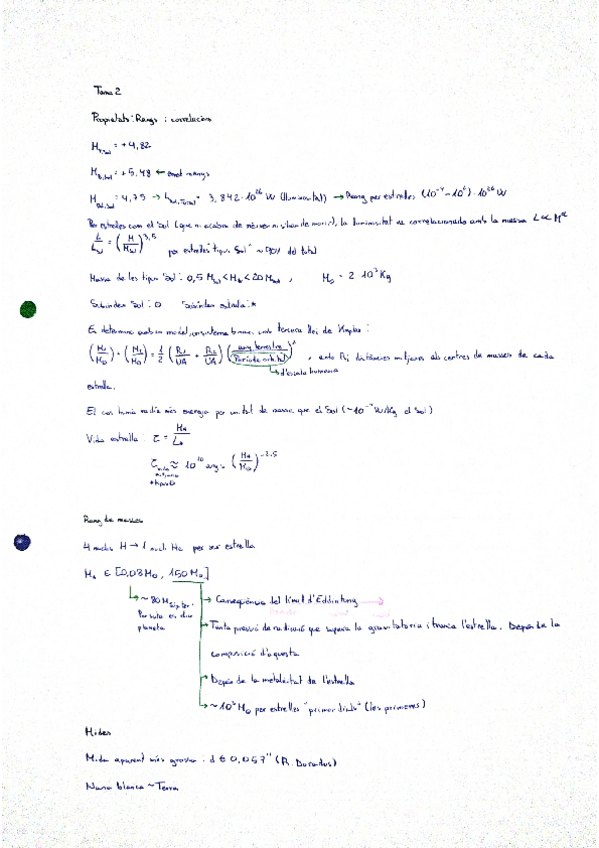 Tema 2
Propietats: Rangs i correlacions
M_V,sol = +4,82
M_B,sol = +5,48 ← amb
M_bol,sol = 4,75 → L_sol,total = 3,842·10^26 W (lluminositat) → Rang per estrelles (10^-4 - 10^6)·10^26 W
Per estrelles com el Sol (que ni acaben de néixer ni s'han de morir), la lluminositat va correlacionada amb la massa L ∝ M^α
L/L_sol = (M/M_sol)^3,5 per estrelles "tipus Sol" ~ 90% del total
Massa de les tipus Sol: 0,5 M_sol < M_* < 20 M_sol , M_⊙ ~ 2·10^30 Kg
Subíndex Sol: ⊙ Subíndex estrella: *
Es determina amb un model, un sistema binari, amb tercera llei de Kepler:
(M_1/M_⊙) + (M_2/M_⊙) = 1/2 (R_1/UA + R_2/UA) (any terrestre/Període orbital)^2 , amb R_i distàncies mitjanes als centres de masses de cada
→ d'escala humana
estrella.
El cos humà radia més energia per unitat de massa que el Sol (~10^-4 W/Kg el Sol)
Vida estrella: τ = M_*/L_*
τ ≈ 10^10 anys · (M_*/M_⊙)^-2,5
Rang de masses
4 nuclis H → 1 nucli He per ser estrella
M_* ∈ [0,08 M_⊙, 150 M_⊙]
→ ~ 80 M_Júpiter. Per sota es diu planeta
→ Conseqüència del límit d'Eddington
→ Tanta pressió de radiació que supera la gravitatòria i trenca l'estrella. Depèn de la
composició d'aquesta
→ Depèn de la metal·licitat de l'estrella
→ ~ 10^3 M_⊙ per estrelles "primordials" (les primeres)
Mides
Mida aparent més grossa: d ∈ 0,057" (R. Doradus)
Nana blanca ~ Terra